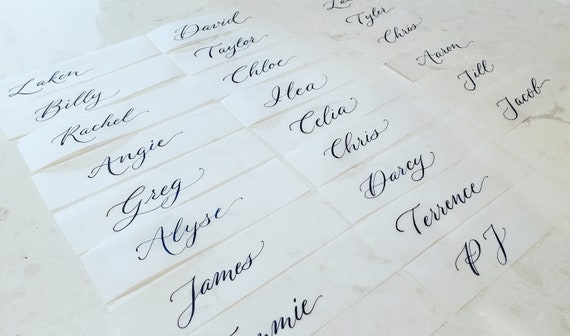 Laken
Billy
Rachel
Angie
Greg
Alyse
James
David
Taylor
Chloe
Ilea
Celia
Chris
Darcy
Terrence
PJ
Tyler
Chris
Aaron
Jill
Jacob